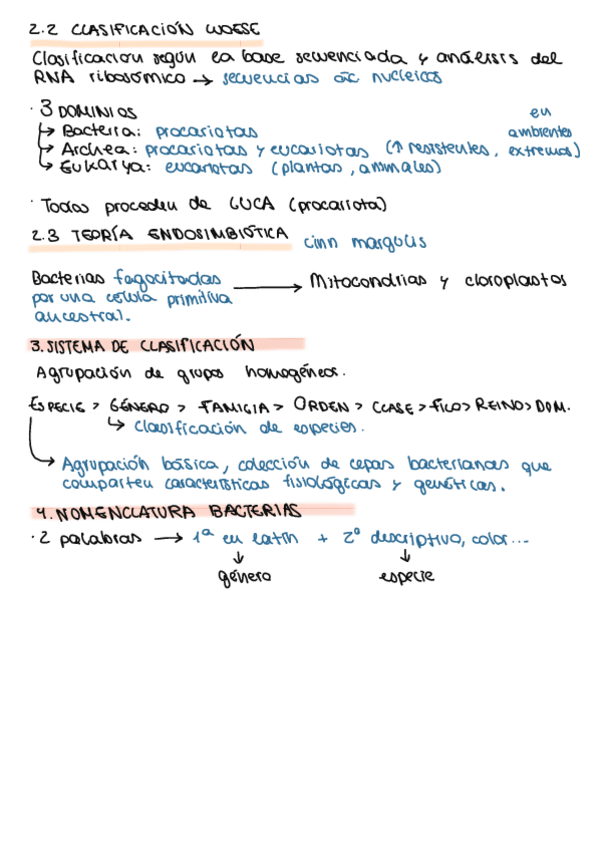 2.2 CLASIFICACIÓN WOESE
Clasificación según la base secuenciada y análisis del
RNA ribosómico → secuencias ác nucleicos
· 3 DOMINIOS
↳ Bacteria: procariotas
↳ Archea: procariotas y eucariotas (↑ resistentes, en ambientes extremos)
↳ Eukarya: eucariotas (plantas, animales)
· Todos proceden de LUCA (procariota)
2.3 TEORÍA ENDOSIMBIÓTICA linn margulis
Bacterias fagocitadas → Mitocondrias y cloroplastos
por una célula primitiva
ancestral.
3. SISTEMA DE CLASIFICACIÓN
Agrupación de grupos homogéneos.
ESPECIE > GÉNERO > FAMILIA > ORDEN > CLASE > FILO > REINO > DOM.
↳ Clasificación de especies.
→ Agrupación básica, colección de cepas bacterianas que
comparten características fisiológicas y genéticas.
4. NOMENCLATURA BACTERIAS
· 2 palabras → 1ª en latín + 2º descriptivo, color...
↓ ↓
género especie